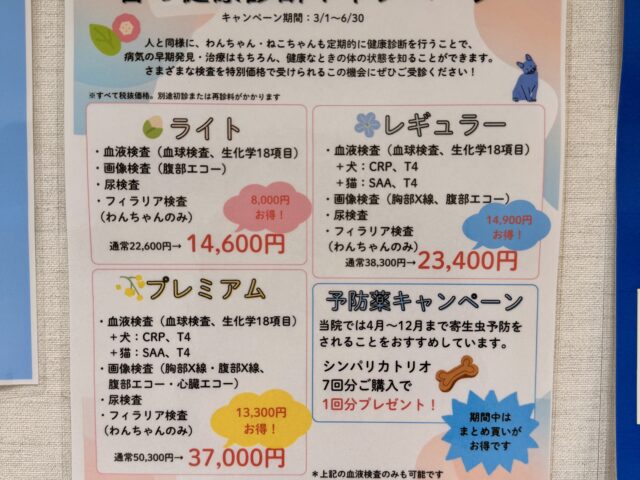 キャンペーン期間：3/1～6/30
人と同様に、わんちゃん・ねこちゃんも定期的に健康診断を行うことで、
病気の早期発見・治療はもちろん、健康なときの体の状態を知ることができます。
さまざまな検査を特別価格で受けられるこの機会にぜひご受診ください！
※すべて税抜価格。別途初診または再診料がかかります
ライト
・血液検査（血球検査、生化学18項目）
・画像検査（腹部エコー）
・尿検査
・フィラリア検査
（わんちゃんのみ）
8,000円
お得！
通常22,600円→ 14,600円
レギュラー
・血液検査（血球検査、生化学18項目）
＋犬：CRP、T4
＋猫：SAA、T4
・画像検査（胸部X線、腹部エコー）
・尿検査
・フィラリア検査
（わんちゃんのみ）
14,900円
お得！
通常38,300円→ 23,400円
プレミアム
・血液検査（血球検査、生化学18項目）
＋犬：CRP、T4
＋猫：SAA、T4
・画像検査（胸部X線・腹部X線、
腹部エコー・心臓エコー）
・尿検査
・フィラリア検査
（わんちゃんのみ）
13,300円
お得！
通常50,300円→ 37,000円
予防薬キャンペーン
当院では4月～12月まで寄生虫予防を
されることをおすすめしています。
シンパリカトリオ
7回分ご購入で
1回分プレゼント！
期間中は
まとめ買いが
お得です
＊上記の血液検査のみも可能です